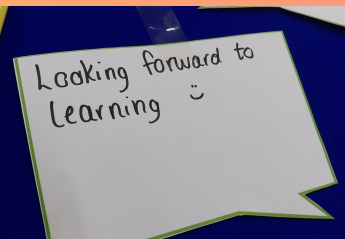 Looking forward to
learning :)